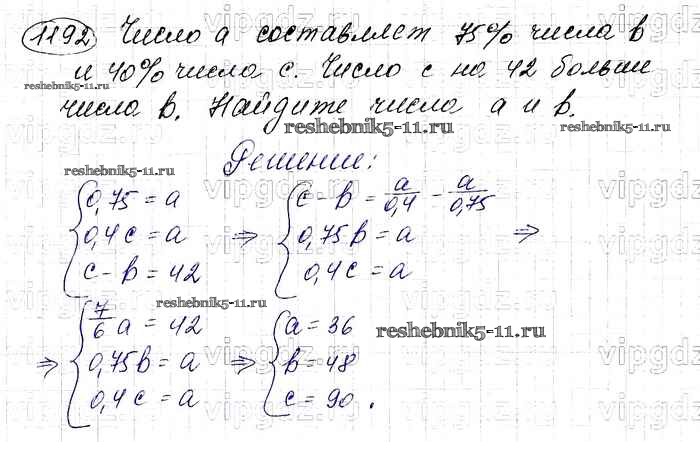 1192 Число a составляет 75% числа b
и 40% числа c. Число c на 42 больше
числа b. Найдите числа a и b.
reshebnik5-11.ru
reshebnik5-11.ru
Решение:
reshebnik5-11.ru
{ 0,75 = a
0,4c = a
c - b = 42
⇒ { c - b = a/0,4 - a/0,75
0,75b = a ⇒
0,4c = a
reshebnik5-11.ru
⇒ { 7/6 a = 42
0,75b = a
0,4c = a
⇒ { a = 36
b = 48
c = 90.
reshebnik5-11.ru
vipgdz.ru